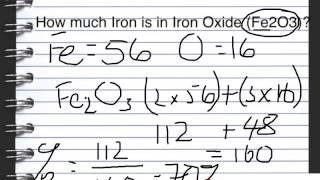 How much Iron is in Iron Oxide (Fe2O3)?
Fe=56 O=16
Fe2O3 (2x56)+(3x16)
112 +48
=160
% = 112
=70%